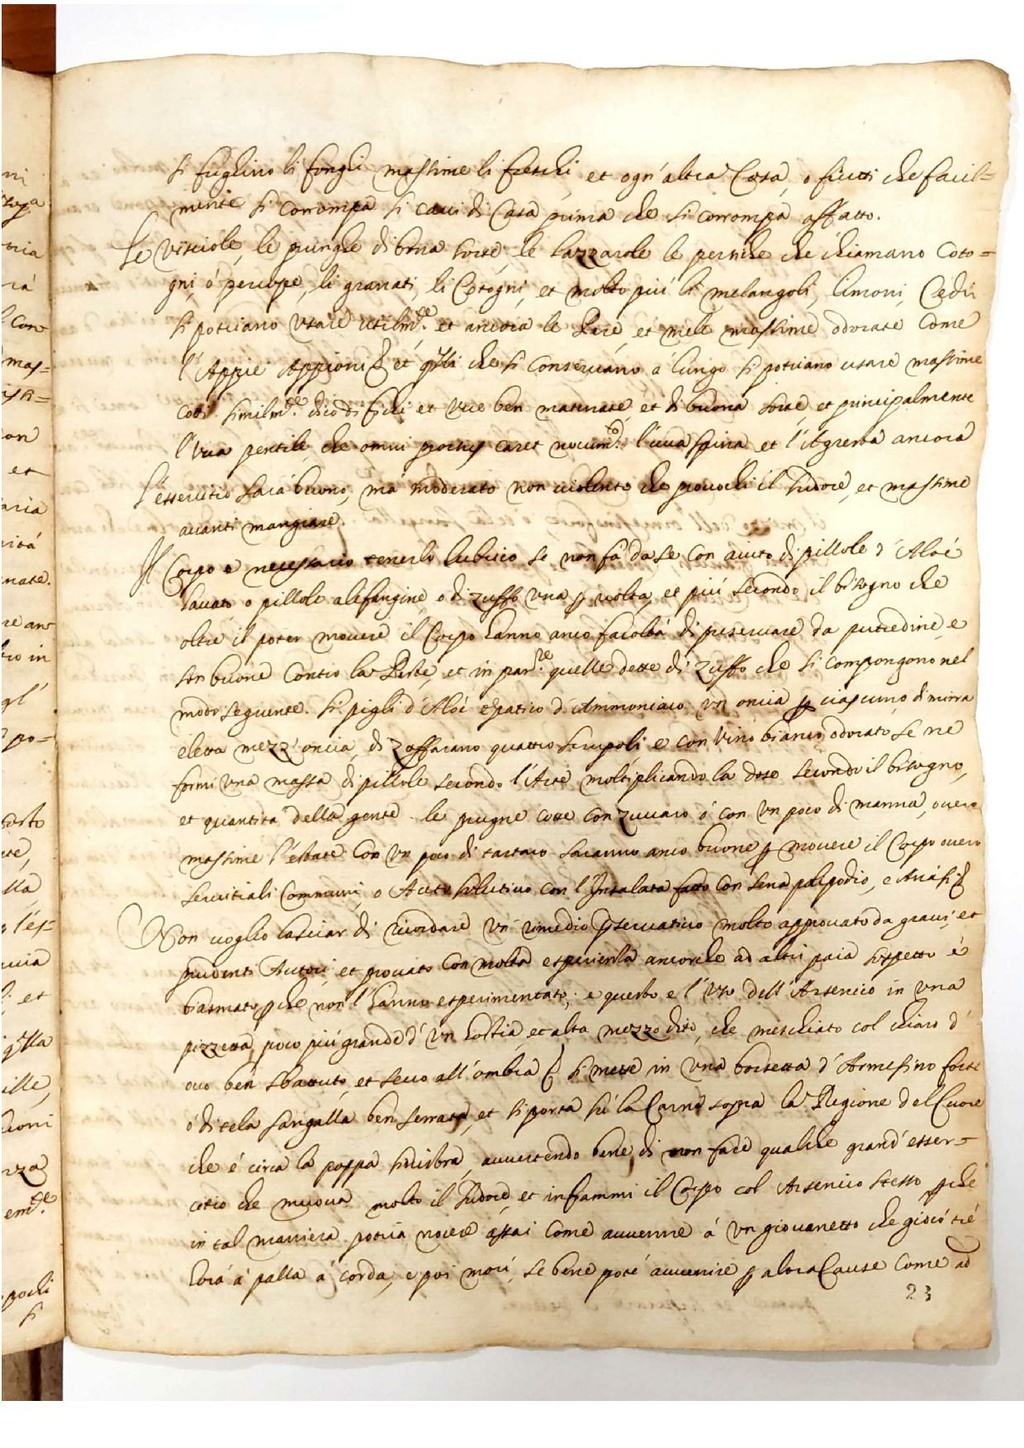 si fughino li fonghi massime li freschi et ogn'altra Cosa, o frutti che facil=
mente si corrompa si cavi di Casa prima che si corrompa affatto.
Le visciole, le prungle di bona sorte, le lazzarole le persiche che chiamano Coto=
gni, ó percope, li granati, li Cotogni, et molto piú li melangoli, limoni, Cedri
si potriano usare utilm.te et ancora le Pere, et mele massime odorate come
l'Appie Appioni & et q.lli che si conservano a lungo si potriano usare massime
cotti similm.te dico di fichi et uve ben maturate et di buona sorte, et principalmente
l'uva gentile che omni caret nocum.to l'uva spina et l'Agresta ancora
l'essercitio sará buono, ma moderato non violento che provochi il sudore, et massime
avanti mangiare.
Il Corpo e necessario tenerlo lubrico se non fá da se con aiuto di pillole d'Aloé
lavato o pillole alefangine, o di zuffo una p volta, et piú secondo il bisogno che
oltre il poter movere il Corpo hanno anco facoltá di preservare da putredine, e
son buone contro la Peste, et in par.re quelle dette di Zuffo che si compongono nel
modo seguente. Si pigli d'Aloé epatico d'Ammoniaco un oncia p ciascuno di mirra
eletta mezz'oncia, di zaffarano quattro scrupoli e con vino bianco odorato se ne
formi una massa di pillole secondo l'Arte moltiplicando la dose secondo il bisogno,
et quantitá della gente. le prugne cotte con zuccaro ó con un poco di manna, overo
massime l'estate con un poco di tartaro saranno anco buone p movere il Corpo overo
servitiali Communi, o Aceto solutivo con l'Insalata fatto con sena polipodio, e Anisi &
Non voglio lasciar di ricordare un rimedio p.servativo molto approvato da gravi, et
prudenti Autori, et provato con molta esperienza ancorche ad altri paia sospetto é
biasmato p che non l'hanno esperimentato; e questo e l'uso dell'Arsenico in una
pizzetta, poco piú grande d'un hostia et alta mezzo dito, che meschiato col chiaro d'
ovo ben sbattuto, et secco all'ombra si mette in una borsetta d'Armesino forte
ó di tela sangalla ben serrata, et si porta sú la Carne sopra la Regione del Cuore
che é circa la poppa sinistra, avvertendo bene di non fare qualche grand'esser=
citio che muova molto il sudore, et infiammi il Corpo col Arsenico stesso p che
in tal maniera potria nocere assai come avvenne á un giovanetto che giocó tré
hore á palla á corda, e poi morí, se bene poté avvenire p altra Cause come ad
23